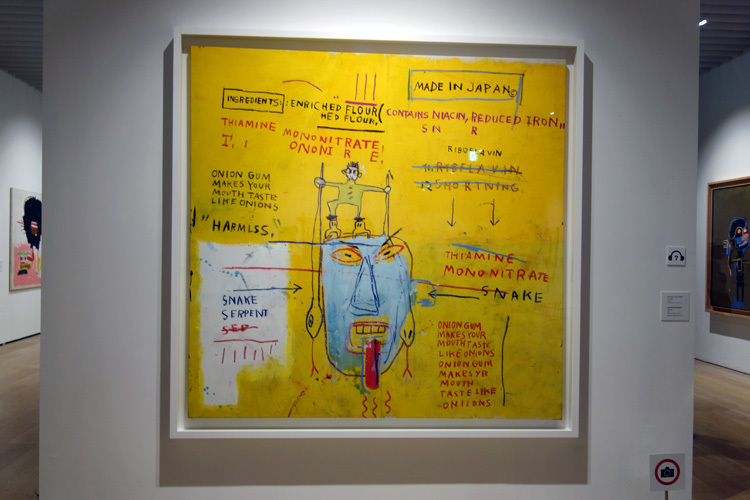 MADE IN JAPAN
INGREDIENTS: ENRICHED FLOUR (
HED FLOUR,
CONTAINS NIACIN, REDUCED IRON,,
SN R
THIAMINE MONONITRATE!
T, I ONONI R E,
RIBOFLAVIN
SHORTNING
ONION GUM
MAKES YOUR
MOUTH TASTE
LIKE ONIONS
"HARMLSS,"
THIAMINE
MONONITRATE
SNAKE
SNAKE
SERPENT
SEP
ONION GUM
MAKES YOUR
MOUTH TASTE
LIKE ONIONS
ONION GUM
MAKES YR
MOUTH
TASTE LIKE
ONIIONS